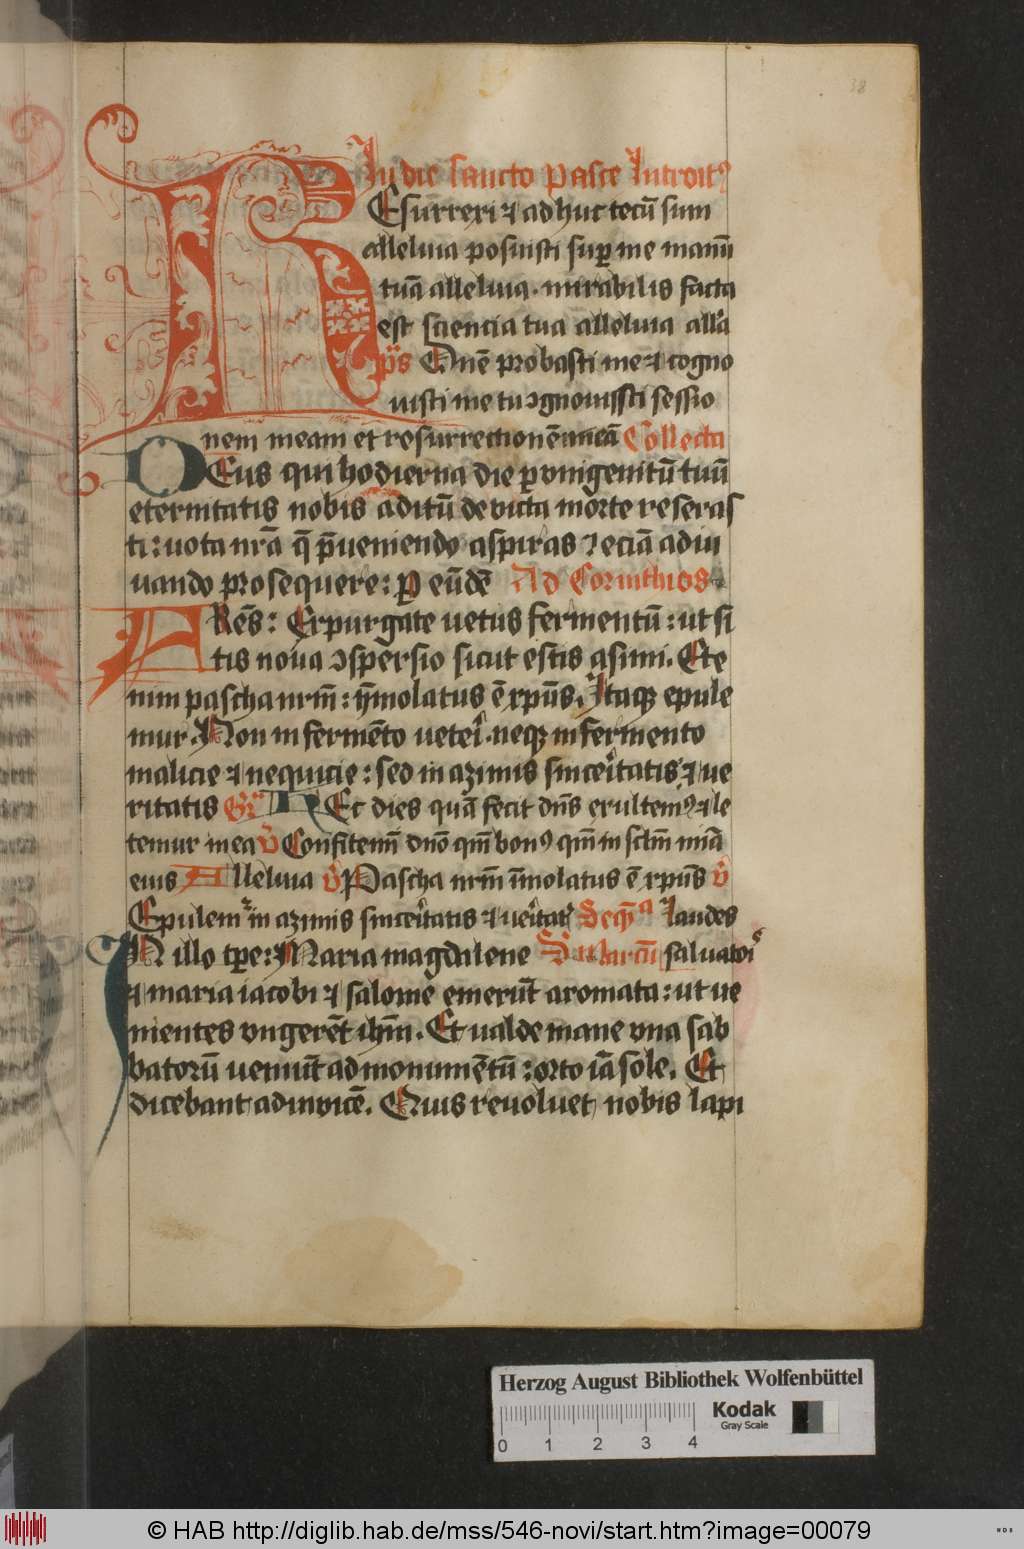 38
In die sancto pasce Introitꝰ
REsurrexi ⁊ adhuc tecū sum
alleluia posuisti suꝑ me manū
tuā alleluia. mirabilis facta
est sciencia tua alleluia all'a
p̄s Dn̄e probasti me ⁊ cogno
uisti me tu ꝯgnouissti sessio
nem meam et resurrectionē meā Collecta
DEus qui hodierna die ꝑ vnigenitū tuū
eternitatis nobis aditū deuicta morte reseras
ti: uota nr̄a q̄ p̄ueniendo aspiras ⁊ eciā adiu
uando prosequere: ꝑ eūdē Ad Corinthios
FRēs: Expurgate uetus fermentū: ut si
tis noua ꝯspersio sicut estis asimi. Ete
nim pascha nrm̄: ym̄olatus ē xp̄us. Itaqꝫ epule
mur. Non in fermēto ueteri. neqꝫ in fermento
malicie ⁊ nequicie: sed in azimis sinceritatis ⁊ ue
ritatis Gr̄ HEc dies quā fecit dn̄s exultemꝰ ⁊ le
temur in ea v̄ Confitemī dn̄o qm̄ bonꝰ qm̄ in sclm̄ mīa
eius Alleluia v̄ Pascha nrm̄ īmolatus ē xp̄us v̄
Epulemr in azimis sinceritatis ⁊ ueritatꝭ Seqn̄a laudes
IN illo tꝑe: Maria magdalene S Marcū saluatori
⁊ maria iacobi ⁊ salome emerūt aromata: ut ue
nientes vngerēt ihm̄. Et ualde mane vna sab
batorū ueniūt ad monumētū: orto iā sole. Et
dicebant adinvicē. Quis reuoluet nobis lapi
Herzog August Bibliothek Wolfenbüttel
Kodak
Gray Scale
0 1 2 3 4
© HAB http://diglib.hab.de/mss/546-novi/start.htm?image=00079